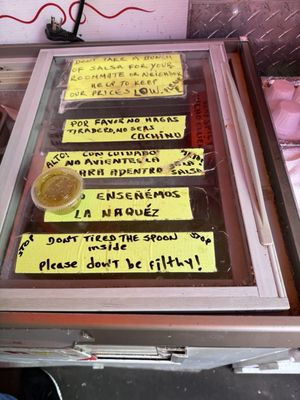 DON'T TAKE A BUNCH
OF SALSA FOR YOUR
ROOMMATE OR NEIGHBOR
HELP TO KEEP
OUR PRICES LOW.
POR FAVOR NO HAGAS
TIRADERO, NO SEAS
COCHINO
ALTO! CON CUIDADO
NO AVIENTES LA
ARA ADENTRO
LA
SALSA
ENSEÑÉMOS
LA NAQUÉZ
STOP DON'T TIRED THE SPOON STOP
inside
please don't be filthy!